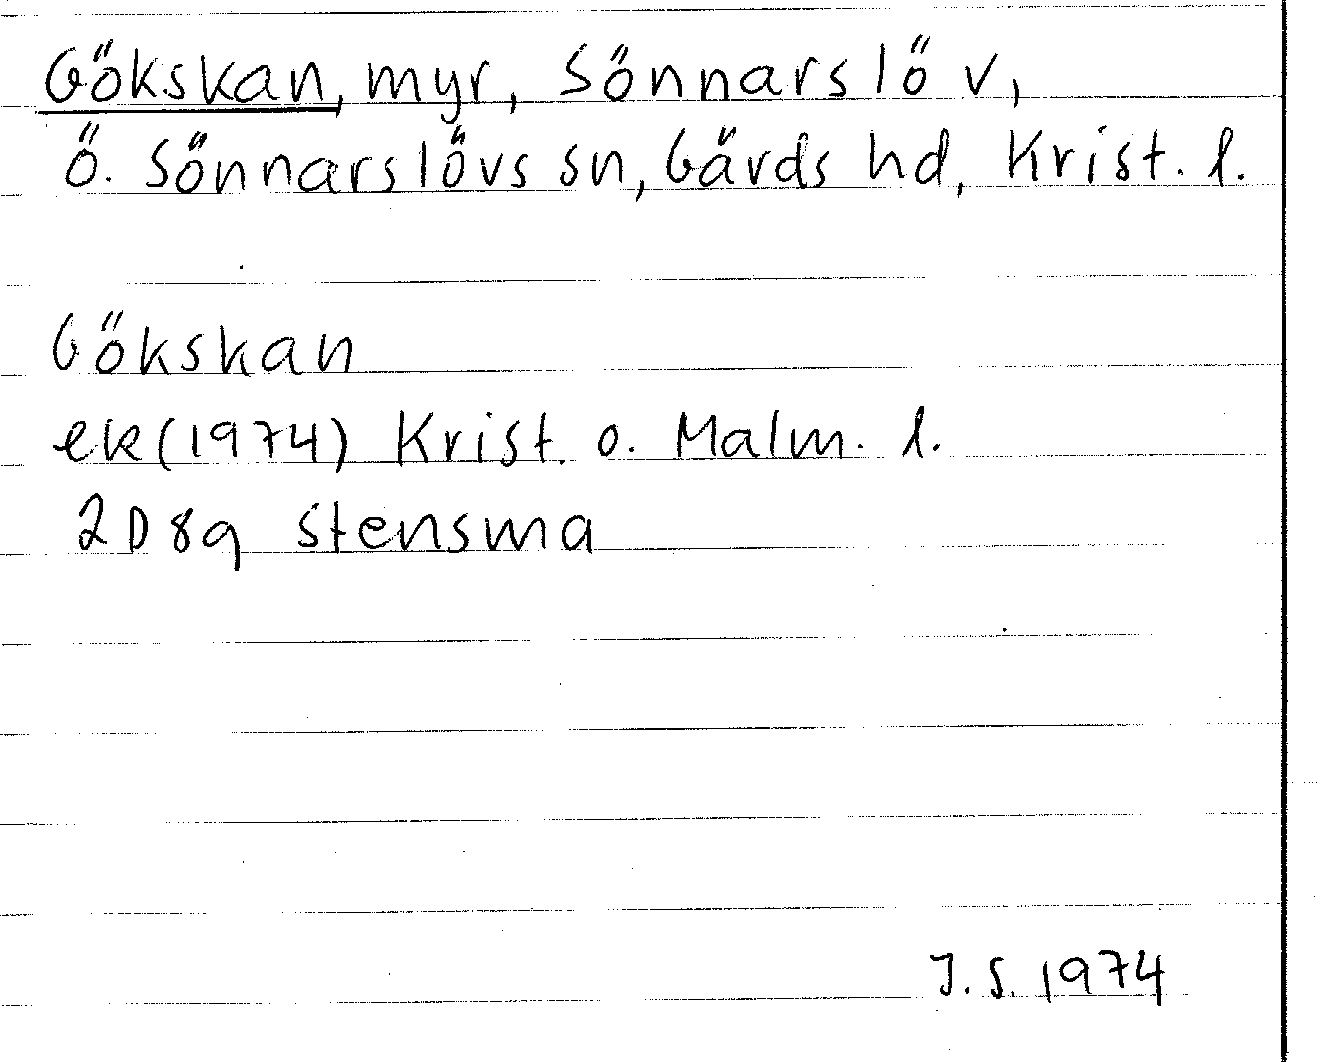 Gökskan, myr, Sönnarslöv,
Ö. Sönnarslövs sn, Gärds hd, Krist. l.
Gökskan
ek(1974) Krist. o. Malm. l.
2D8g Stensma
J.S. 1974